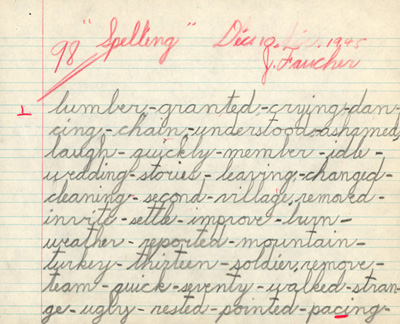 98 "Spelling" Dec 10, 1945
J. Faucher
1 lumber-granted-crying-dan-
cing-chain-understood-ashamed
laugh-quickly-member-idle-
wedding-stories-leaving-changed-
cleaning-second-village, removed-
invite-settle-improve-burn-
weather-reported-mountain-
turkey-thirteen-soldier, remove-
team-quick-seventy-walked-stran-
ge-ugly-rested-pointed-pacing-